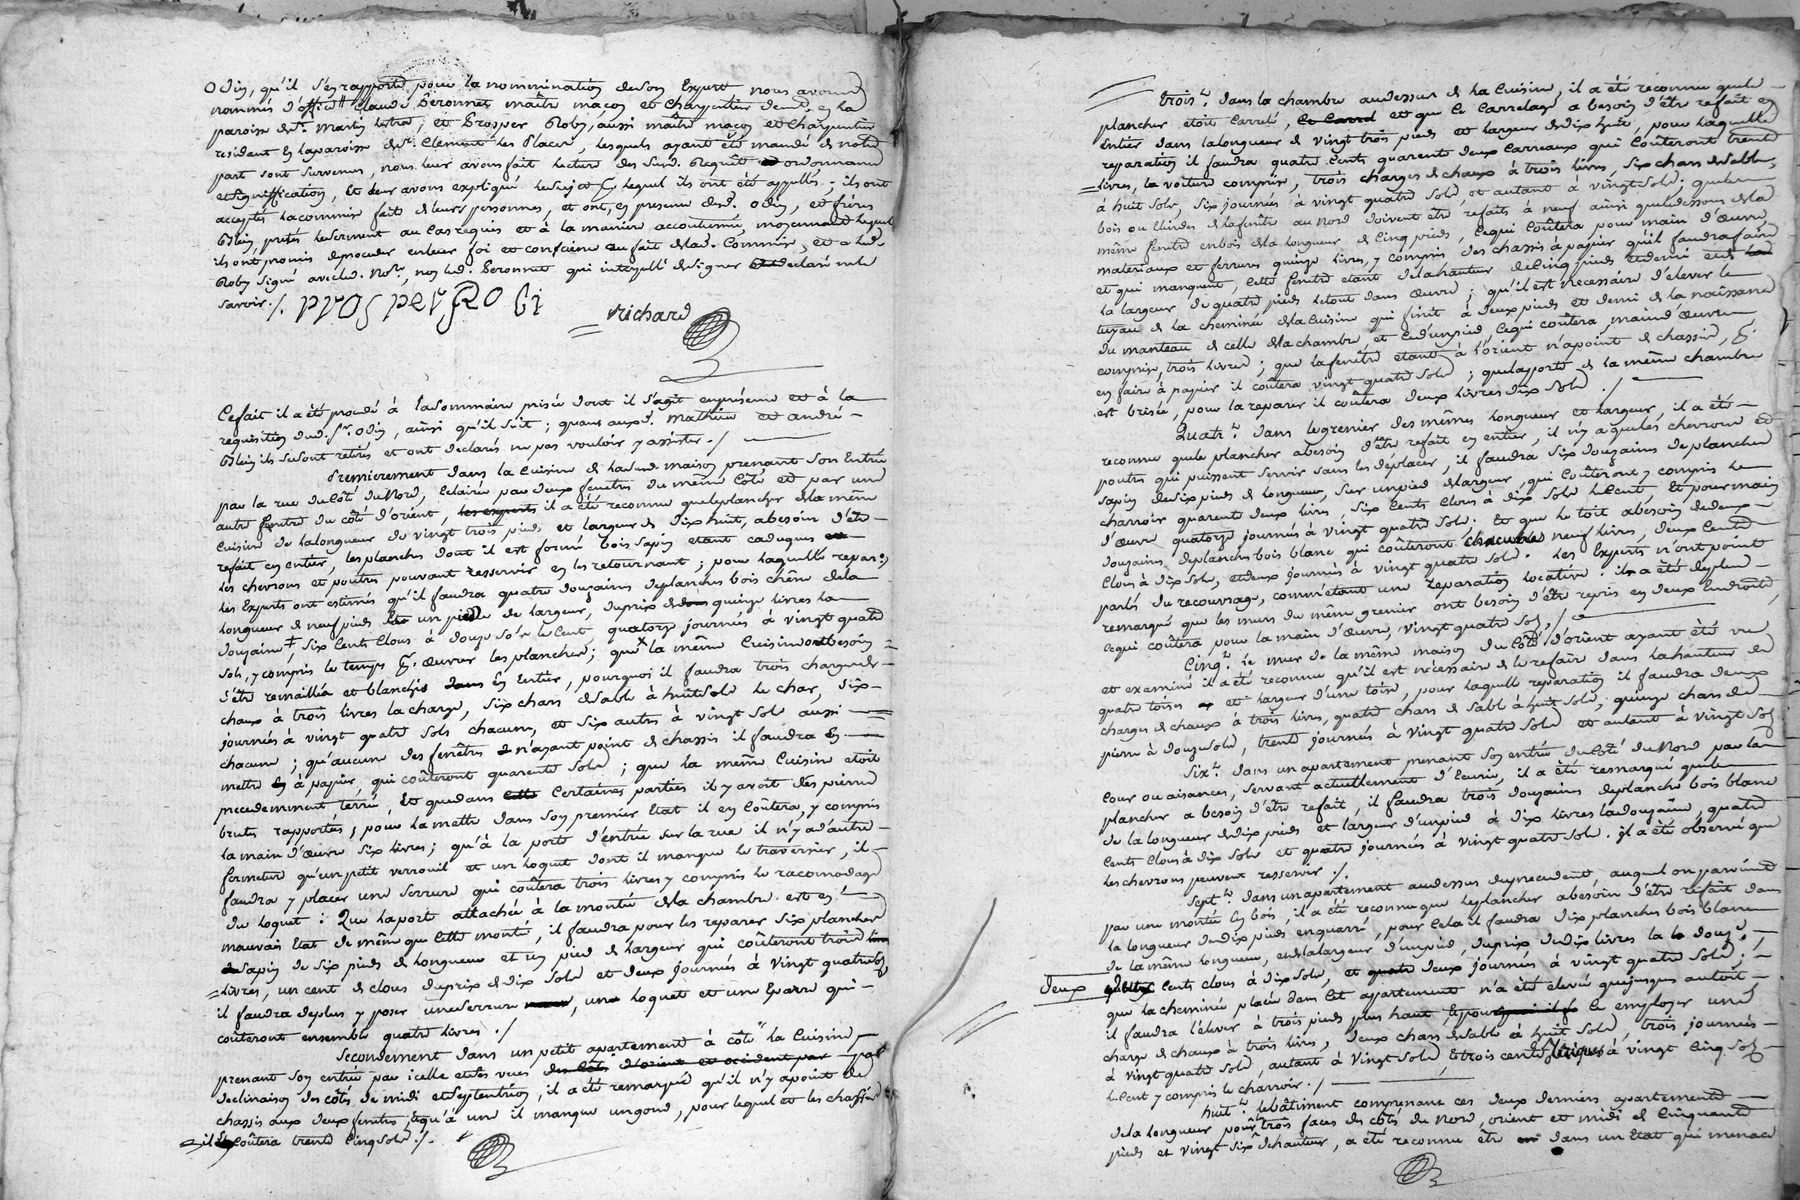 Odin, qu'il s'en rapporte pour la nommination de son Expert nous avons
nommés d'office Claude Peronnet maître maçon et charpentier dem.t en la
paroisse de St. Martin et Prosper Roby, aussi maître maçon et charpentier
résidant en la paroisse de St. Clément les Places, lesquels ayant été mandé de notre
part sont survenus, nous leur avons fait lecture des susd. Requête ordonnance
et signiffication, et leur avons expliqué le sujet lequel ils ont été appellés; ils ont
acceptés la commission faite de leurs personnes, et ont, en presence dud. Odin, et frères
Blein, prêté le serment au cas requis et à la maniere accoutumée, moyennant lequel
ils ont promis de proceder en leur foi et conscience au fait de lad. Commission, et a led.
Roby signé avec led. non led. Peronnet qui interpellé de signer declaré ne le
savoir ./. prosper Robi richard
Ce fait il a été procédé à la sommaire prisée dont il s'agit en présence et à la
requisition dud. Sr. Odin, ainsi qu'il suit; quant auxd. Mathieu et andré
Blein ils se sont retirés et ont declarés ne pas vouloir y assister ./
Premierement dans la cuisine de lad. maison prenant son Entrée
par la rue du côté du Nord, Eclairée par deux fenetres du même côté et par une
autre fenetre du côté d'orient, les experts il a été reconnu que le plancher de la même
cuisine de la longueur de vingt trois pieds et largeur de dix huit, a besoin d'être
refait en entier, les planches dont il est formé bois sapin etant caduques
les chevrons et poutres pouvant resservir en les retournant; pour laquelle repar.on
les Experts ont estimés qu'il faudra quatre douzaines de planches bois chêne de la
longueur de neuf pieds un pied de largeur, du prix de quinze livres la
douzaine, six cents clous à douze sols le cent, quatorze journées à vingt quatre
sols, y compris le temps œuvrer les planches; que la même Cuisine a besoin
d'être remaillée et blanchie dans en Entier, pourquoi il faudra trois charges de
chaux à trois livres la charge, six chars de sable à huit sols le char, six
journées à vingt quatre sols chacune, et six autres à vingt sols aussi
chacune; qu'aucune des fenêtres n'ayant point de chassis il faudra en
mettre à papier, qui coûteront quarente sols; que la même Cuisine etoit
precedemment terrée, et que dans cette certaines parties il y avoit des pierres
brutes rapportés, pour la mettre dans son premier Etat il en Coûtera, y compris
la main d'œuvre six livres; qu'à la porte d'entrée sur la rue il n'y a d'autre
fermeture qu'un petit verrouil et un loquet dont il manque le traversier, il
faudra y placer une serrure qui coûtera trois livres y compris le racomodage
du loquet: Que la porte attachée à la montée de la chambre est en
mauvais Etat de même que cette montée, il faudra pour les reparer six planches
sapin de six pieds de longueur et un pied de largeur qui coûteront trois
livres, un cent de clous du prix de dix sols et deux journées à vingt quatre sols
il faudra de plus y poser une serrure, un loquet et une Eparre qui
coûteront ensemble quatre livres ./
Secondement dans un petit apartement à côté la Cuisine
prenant son entrée par icelle et des vues des côtés d'orient et occident par
declinaison des côtés de midi et septentrion, il a été remarqué qu'il n'y a point de
chassis aux deux fenetres, et qu'à une il manque un gond, pour lequel et les chassis
il Coûtera trente cinq sols ./.
Trois.t dans la chambre au dessus de la Cuisine, il a été reconnu que le
plancher etoit carrelé, et que le Carrelage a besoin d'être refait en
entier dans la longueur de vingt trois pieds et largeur de dix huit, pour laquelle
reparation il faudra quatre cents quarente deux carreaux qui coûteront trente
livres, la voiture comprise, trois charges de chaux à trois livres, six chars de sable
à huit sols, six journées à vingt quatre sols, et autant à vingt sols; que le
bois ou de la fenêtre au nord doivent etre refaits à neuf ainsi que le dessous de la
même fenetre en bois de la longueur de cinq pieds, ce qui coûtera pour main d'œuvre
materiaux et ferrures quinze livres, y compris des chassis à papier qu'il faudra faire
et qui manquent, cette fenetre etant de la hauteur de cinq pieds et demi
la largeur de quatre pieds le tout dans œuvre; qu'il est necessaire d'elever le
tuyau de la cheminée de la Cuisine qui finit à deux pieds et demi de la naissance
du manteau de celle de la chambre, et ce d'un pied ce qui coûtera, main d'œuvre
comprise, trois livres; que la fenêtre etant à l'orient n'a point de chassis,
en faire à papier il coûtera vingt quatre sols; que la porte de la même chambre
est brisée, pour la reparer il coûtera deux livres dix sols ./
Quatr.t dans le grenier des mêmes longueur et largeur, il a été
reconnu que le plancher a besoin d'être refait en entier, il n'y a que les chevrons et
poutres qui puissent servir sans les déplacer, il faudra six douzaines de planches
sapin de six pieds de longueur, sur un pied de largeur, qui coûteront y compris le
charroir quarente deux livres, six cents clous à dix sols le cent, et pour main
d'œuvre quatorze journées à vingt quatre sols. Et que le toit a besoin de deux
douzaines de planches bois blanc qui coûteront neuf livres, deux cents
clous à dix sols, et deux journées à vingt quatre sols. Les Experts n'ont point
parlé du recouvrage, comme étant une reparation locative: il a été de plus
remarqué que les murs du même grenier ont besoin d'être repris en deux Endroits,
ce qui coûtera pour la main d'œuvre, vingt quatre sols ./
Cinq.t le mur de la même maison du côté d'orient ayant été vu
et examiné il a été reconnu qu'il est nécessaire de le refaire dans la hauteur de
quatre toises et largeur d'une toise, pour laquelle reparation il faudra deux
charges de chaux à trois livres, quatre chars de sable à huit sols; quinze chars de
pierre à douze sols, trente journées à vingt quatre sols et autant à vingt sols
Six.t dans un apartement prenant son entrée du côté du Nord par la
cour ou aisances, servant actuellement d'Ecurie, il a été remarqué que le
plancher a besoin d'être refait, il faudra trois douzaines de planches bois blanc
de la longueur de dix pieds et largeur d'un pied à dix livres la douzaine, quatre
cents clous à dix sols et quatre journées à vingt quatre sols. Il a été observé que
les chevrons peuvent resservir ./.
Sept.t dans un apartement au dessus du precedent, auquel on parvient
par une montée en bois, il a été reconnu que le plancher a besoin d'être refait dans
la longueur de dix pieds en quarré, pour cela il faudra dix planches bois blanc
de la même longueur, et de la largeur d'un pied, du prix de dix livres la douz.e,
deux cents clous à dix sols, et quatre deux journées à vingt quatre sols;
que la cheminée placée dans cet apartement n'a été elevée que jusques au toit,
il faudra l'élever à trois pieds plus haut, le employer une
charge de chaux à trois livres, deux chars de sable à huit sols, trois journées
à vingt quatre sols, autant à vingt sols, et trois cents briques à vingt cinq sols
le cent y compris le charroir ./
Huit.t le bâtiment comprenant ces deux derniers apartements
de la longueur pour les trois faces des côtés du Nord, orient et midi de cinquante
pieds et vingt six de hauteur, a été reconnu être dans un Etat qui menace